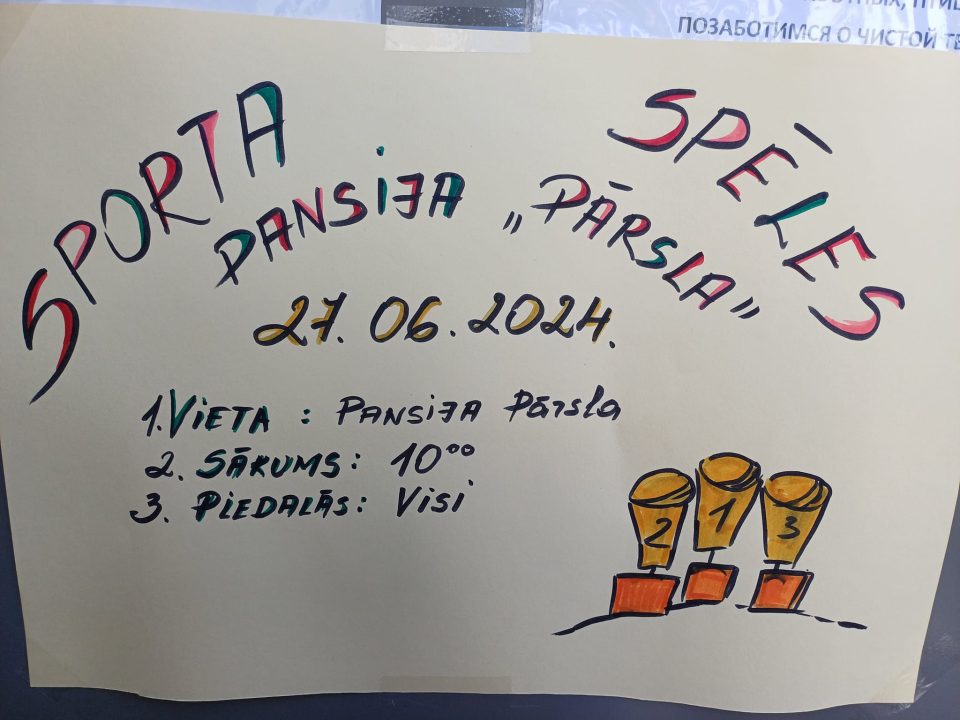 ПОЗАБОТИМСЯ О ЧИСТОЙ
SPORTA SPĒLES
PANSIJA „PĀRSLA”
27.06.2024.
1. VIETA : PANSIJA Pārsla
2. SĀKUMS: 10⁰⁰
3. PIEDALĀS: Visi
2 1 3